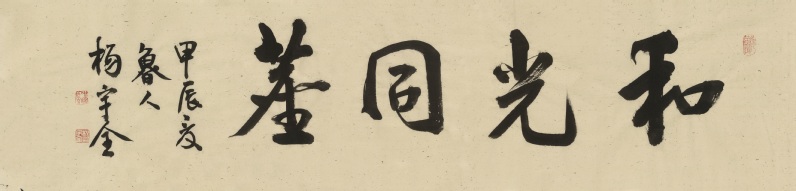 和光同塵
甲辰夏
魯人
楊宇全